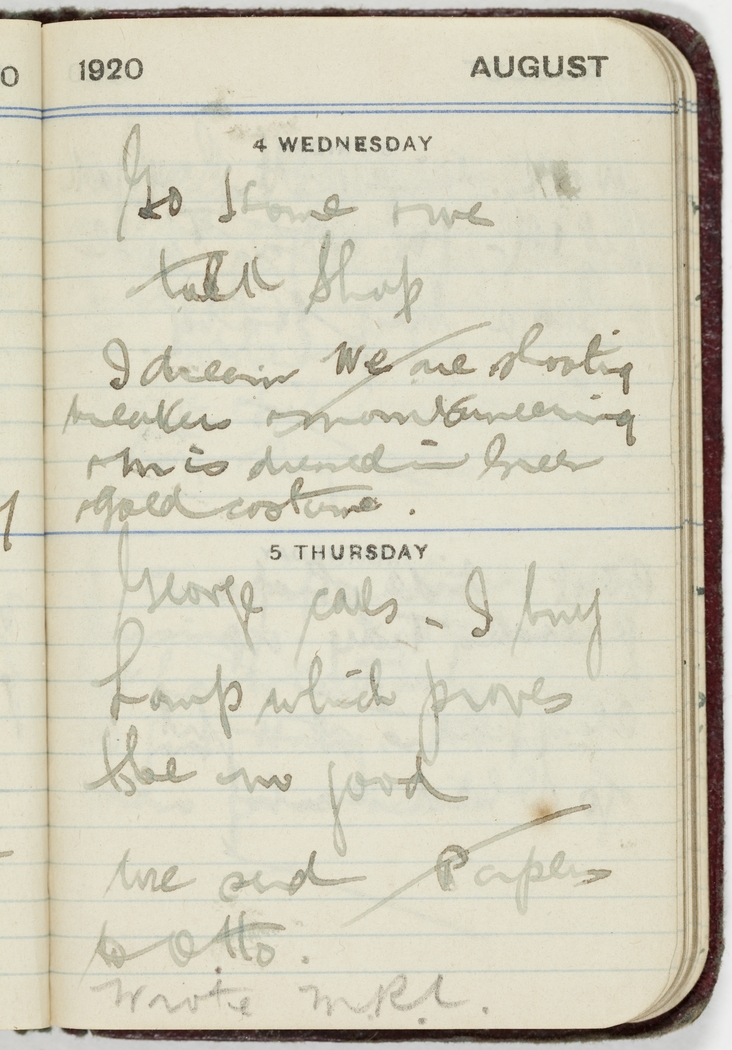 1920 AUGUST
4 WEDNESDAY
Go home & we
talk Shop
I dream We are shooting
breakers & mountaineering
& M is dressed in green
& gold costume.
5 THURSDAY
George calls - I buy
Lamp which proves
tbe no good
We send Papers
to Otto.
Wrote M.R.L.